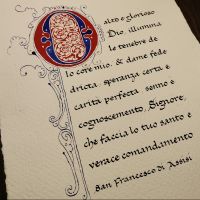 O alto e glorioso
Dio, illumina
le tenebre de
lo core mio, & dame fede
dricta, speranza certa e
carità perfecta, senno e
cognoscemento, Signore,
che faccia lo tuo santo e
verace comandamento
San Francesco di Assisi